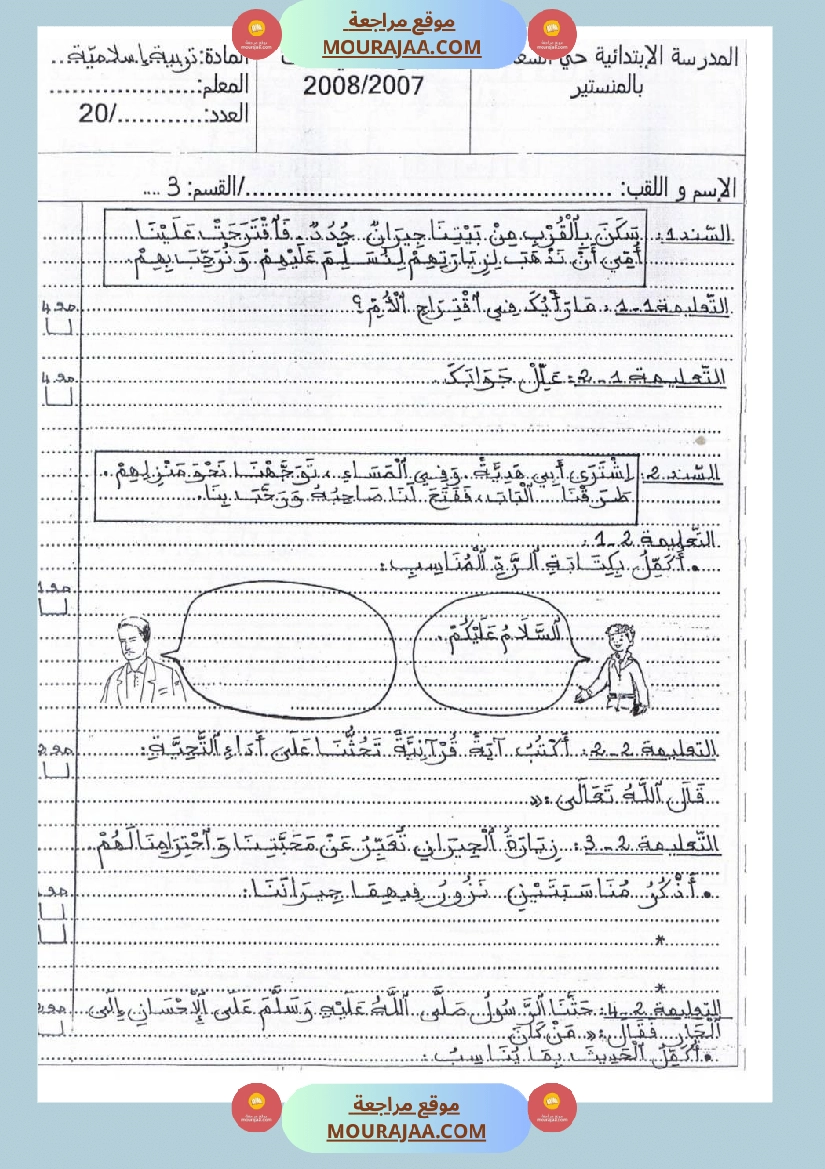 موقع مراجعة
MOURAJAA.COM
المدرسة الإبتدائية حي
بالمنستير
2008/2007
المادة: تربية إسلاميّة
المعلم: ....................
العدد: ............/20
الإسم و اللقب: ................................................../القسم: 3 ....
السّند1: سَكَنَ بِالْقُرْبِ مِنْ بَيْتِنَا جِيرَانٌ جُدُدٌ. فَاقْتَرَحَتْ عَلَيْنَا
أُمِّي أَنْ نَذْهَبَ لِزِيَارَتِهِمْ لِنُسَلِّمَ عَلَيْهِمْ وَنُرَحِّبَ بِهِمْ.
التّعليمة1-1: مَا رَأْيُكَ فِي اقْتِرَاحِ الْأُمِّ؟
مع 4
التّعليمة 1-2: عَلِّلْ جَوَابَكَ
مع 4
السّند 2: اِشْتَرَى أَبِي هَدِيَّةً وَفِي الْمَسَاءِ، تَوَجَّهْنَا نَحْوَ مَنْزِلِهِمْ.
طَرَقْنَا الْبَابَ، فَفَتَحَ لَنَا صَاحِبُهُ وَرَحَّبَ بِنَا.
التّعليمة 2-1
• أُكْمِلُ بِكِتَابَةِ الرَّدِّ الْمُنَاسِبِ:
مع 1
السَّلَامُ عَلَيْكُمْ.
التعليمة 2-2: أَكْتُبُ آيَةً قُرْآنِيَّةً تَحُثُّنَا عَلَى أَدَاءِ التَّحِيَّةِ:
قَالَ اللَّهُ تَعَالَى: «
التّعليمة 2-3: زِيَارَةُ الْجِيرَانِ تُعَبِّرُ عَنْ مَحَبَّتِنَا وَاحْتِرَامِنَا لَهُمْ
• أَذْكُرُ مُنَاسَبَتَيْنِ نَزُورُ فِيهِمَا جِيرَانَنَا:
*
*
التعليمة 2-4: حَثَّنَا الرَّسُولُ صَلَّى اللَّهُ عَلَيْهِ وَسَلَّمَ عَلَى الْإِحْسَانِ إِلَى
الْجَارِ فَقَالَ: « مَنْ كَانَ
• أُكْمِلُ الْحَدِيثَ بِمَا يُنَاسِبُ:
موقع مراجعة
MOURAJAA.COM